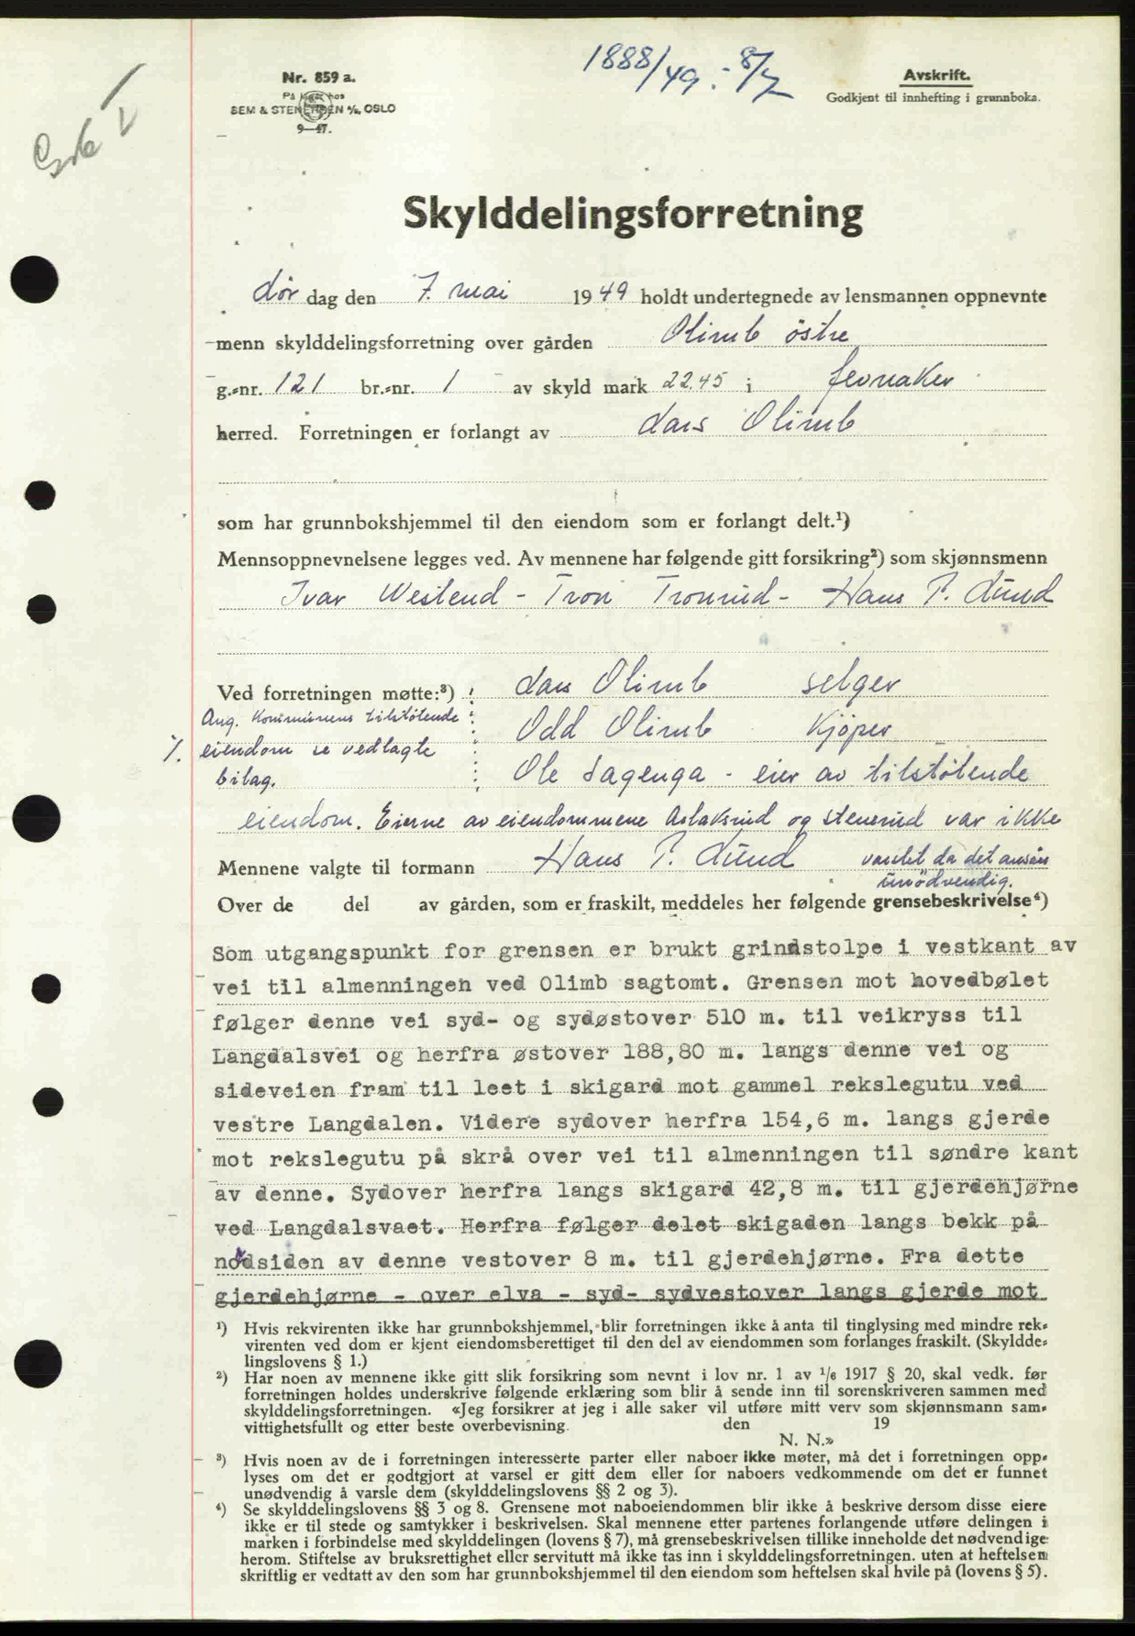 1888/49 - 8/7
Nr. 859 a.
På lager hos
SEM & STENERSEN A/S, OSLO
9—47.
Avskrift.
Godkjent til innhefting i grunnboka.
Skylddelingsforretning
Lør dag den 7. mai 1949 holdt undertegnede av lensmannen oppnevnte
menn skylddelingsforretning over gården Olimb östre
g.-nr. 121 br.-nr. 1 av skyld mark 22.45 i Jevnaker
herred. Forretningen er forlangt av Lars Olimb
som har grunnbokshjemmel til den eiendom som er forlangt delt.¹)
Mennsoppnevnelsene legges ved. Av mennene har følgende gitt forsikring²) som skjønnsmenn
Ivar Westend - Tron Tronrud - Hans P. Lund
Ved forretningen møtte:³) Lars Olimb selger
Ang. Kommunens tilstötende Odd Olimb Kjöper
%. eiendom se vedlagte
bilag. Ole Sagenga - eier av tilstötende
eiendom. Eierne av eiendommene Aslaksrud og Stenerud var ikke
Mennene valgte til formann Hans P. Lund varslet da det ansåes
unödvendig.
Over de del av gården, som er fraskilt, meddeles her følgende grensebeskrivelse⁴)
Som utgangspunkt for grensen er brukt grindstolpe i vestkant av
vei til almenningen ved Olimb sagtomt. Grensen mot hovedbølet
følger denne vei syd- og sydøstover 510 m. til veikryss til
Langdalsvei og herfra østover 188,80 m. langs denne vei og
sideveien fram til leet i skigard mot gammel rekslegutu ved
vestre Langdalen. Videre sydover herfra 154,6 m. langs gjerde
mot rekslegutu på skrå over vei til almenningen til søndre kant
av denne. Sydover herfra langs skigard 42,8 m. til gjerdehjørne
ved Langdalsvaet. Herfra følger delet skigaden langs bekk på
nordsiden av denne vestover 8 m. til gjerdehjørne. Fra dette
gjerdehjørne - over elva - syd- sydvestover langs gjerde mot
¹) Hvis rekvirenten ikke har grunnbokshjemmel, blir forretningen ikke å anta til tinglysing med mindre rek-
virenten ved dom er kjent eiendomsberettiget til den del av eiendommen som forlanges fraskilt. (Skyldde-
lingslovens § 1.)
²) Har noen av mennene ikke gitt slik forsikring som nevnt i lov nr. 1 av 1/6 1917 § 20, skal vedk. før
forretningen holdes underskrive følgende erklæring som blir å sende inn til sorenskriveren sammen med
skylddelingsforretningen. «Jeg forsikrer at jeg i alle saker vil utføre mitt verv som skjønnsmann sam-
vittighetsfullt og etter beste overbevisning. den 19
N. N.»
³) Hvis noen av de i forretningen interesserte parter eller naboer ikke møter, må det i forretningen opp-
lyses om det er godtgjort at varsel er gitt dem eller for naboers vedkommende om det er funnet
unødvendig å varsle dem (skylddelingslovens §§ 2 og 3).
⁴) Se skylddelingslovens §§ 3 og 8. Grensene mot naboeiendommen blir ikke å beskrive dersom disse eiere
ikke er til stede og samtykker i beskrivelsen. Skal mennene etter partenes forlangende utføre delingen i
marken i forbindelse med skylddelingen (lovens § 7), må grensebeskrivelsen tillike inneholde det nødvendige
herom. Stiftelse av bruksrettighet eller servitutt må ikke tas inn i skylddelingsforretningen. uten at heftelsen
skriftlig er vedtatt av den som har grunnbokshjemmel til den eiendom som heftelsen skal hvile på (lovens § 5).